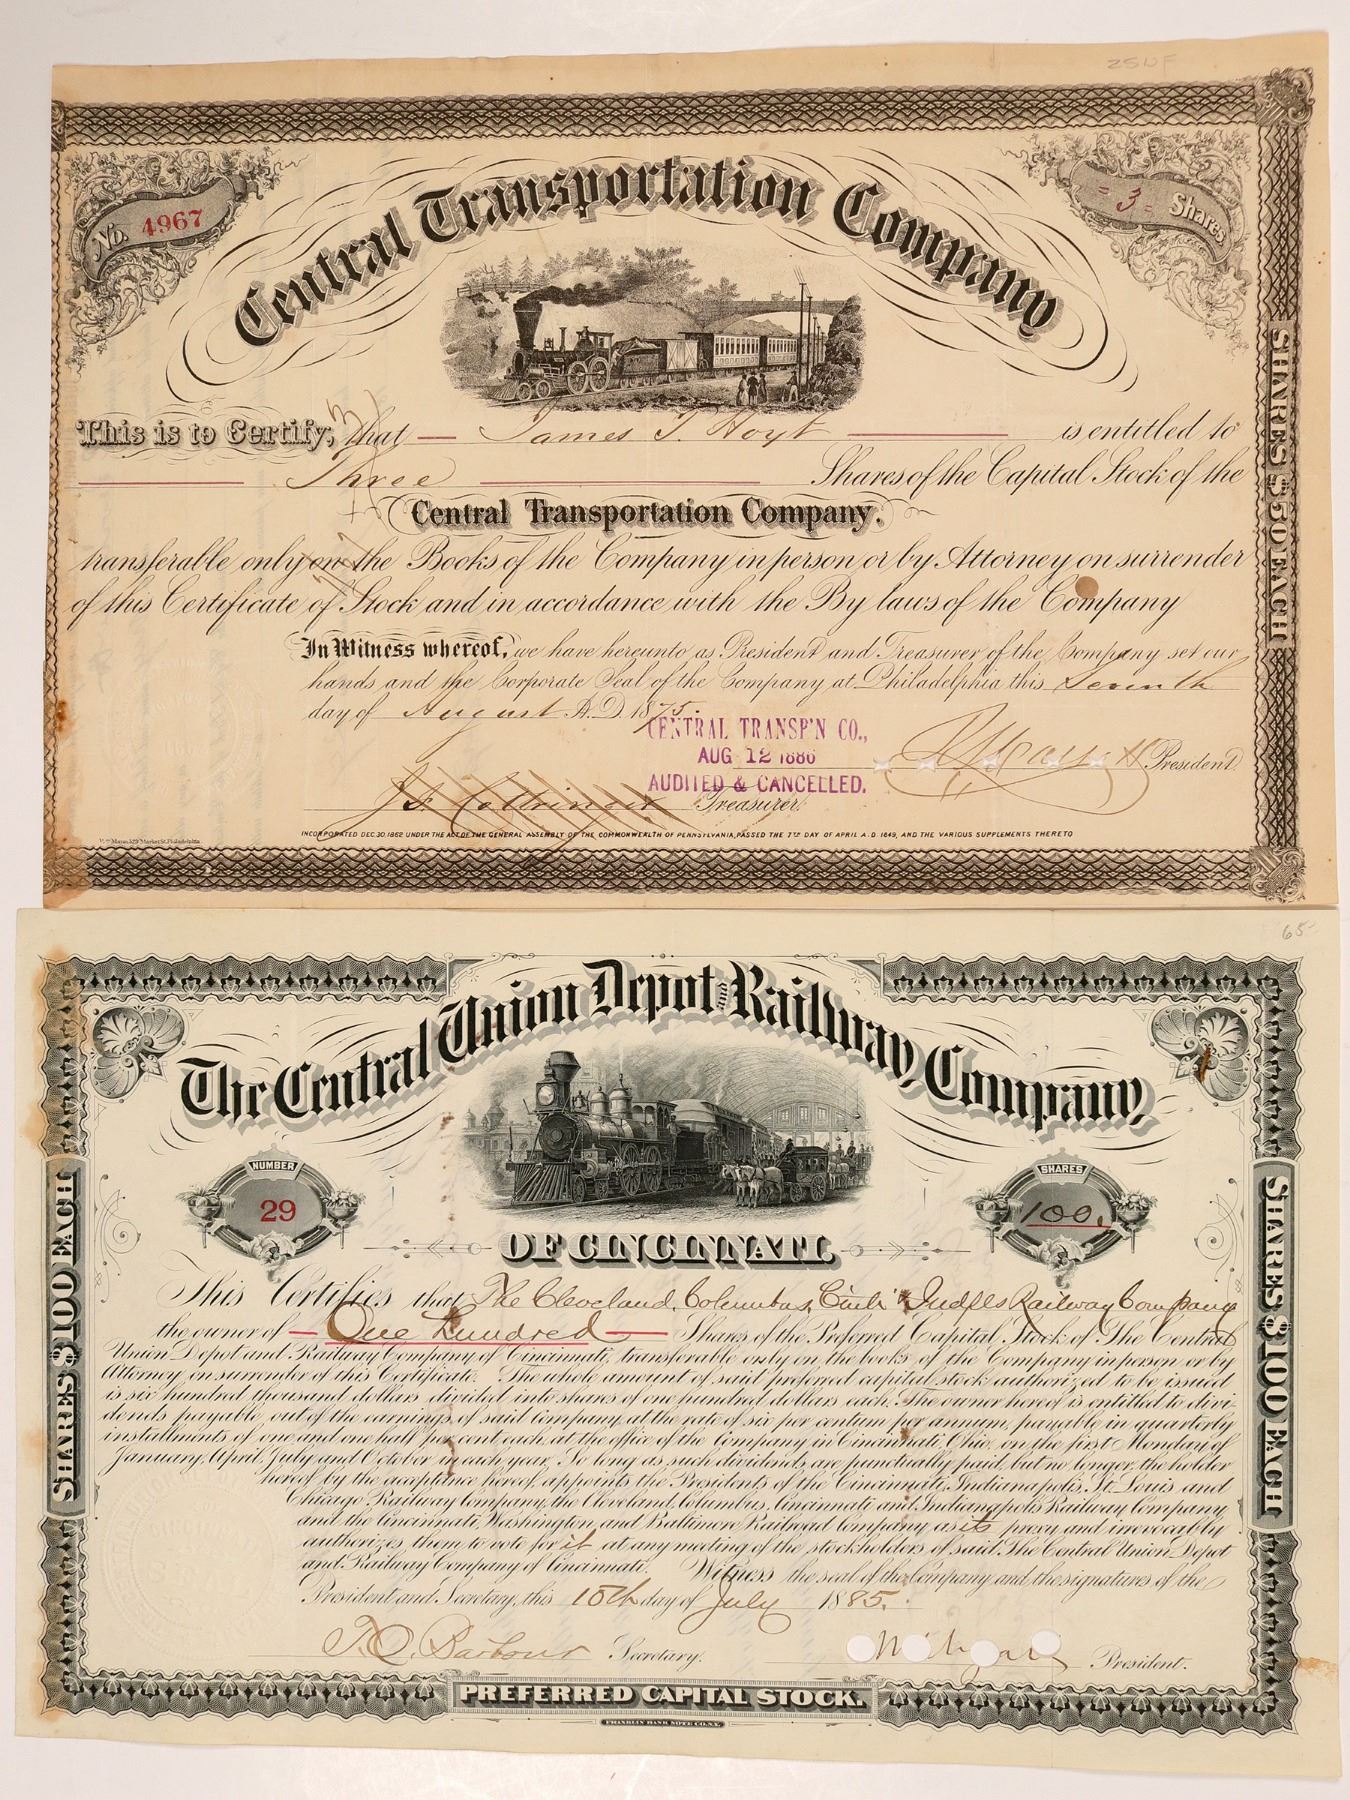 ZSWF
Central Transportation Company
No. 4967
= 3 = Shares
SHARES $50 EACH
This is to Certify, that James T. Hoyt is entitled to
Three Shares of the Capital Stock of the
Central Transportation Company.
transferable only on the Books of the Company in person or by Attorney on surrender
of this Certificate of Stock and in accordance with the By laws of the Company
In Witness whereof, we have hereunto as President and Treasurer of the Company set our
hands and the Corporate Seal of the Company at Philadelphia this Seventh
day of August A.D. 1875.
CENTRAL TRANSP'N CO.,
AUG 12 1886
AUDITED & CANCELLED.
President
Treasurer.
INCORPORATED DEC. 30. 1862 UNDER THE ACT OF THE GENERAL ASSEMBLY OF THE COMMONWEALTH OF PENNSYLVANIA, PASSED THE 7TH DAY OF APRIL A.D. 1849, AND THE VARIOUS SUPPLEMENTS THERETO
65-
The Central Union Depot and Railway Company,
NUMBER
29
SHARES
100.
OF CINCINNATI.
SHARES $100 EACH
SHARES $100 EACH
This Certifies that The Cleveland, Columbus, Cin'ti & Ind'pls Railway Company
the owner of One Hundred Shares of the Preferred Capital Stock of The Central
Union Depot and Railway Company of Cincinnati, transferable only on the books of the Company in person or by
Attorney on surrender of this Certificate. The whole amount of said preferred capital stock authorized to be issued
is six hundred thousand dollars divided into shares of one hundred dollars each. The owner hereof is entitled to divi-
dends payable out of the earnings of said Company, at the rate of six per centum per annum, payable in quarterly
installments of one and one half per cent each, at the office of the Company in Cincinnati, Ohio, on the first Monday of
January, April, July and October in each year. So long as such dividends are punctually paid, but no longer, the holder
hereof by the acceptance hereof, appoints the Presidents of the Cincinnati, Indianapolis, St. Louis and
Chicago Railway Company, the Cleveland, Columbus, Cincinnati and Indianapolis Railway Company
and the Cincinnati, Washington and Baltimore Railroad Company as its proxy and irrevocably
authorizes them to vote for it at any meeting of the stockholders of said The Central Union Depot
and Railway Company of Cincinnati. Witness the seal of the Company and the signatures of the
President and Secretary, this 15th day of July 1885.
Barbour Secretary.
President.
PREFERRED CAPITAL STOCK.
FRANKLIN BANK NOTE CO. N.Y.